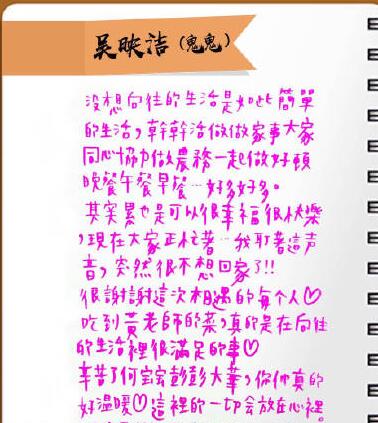 吴映洁(鬼鬼)
沒想向往的生活是如此簡單
的生活,幹幹活做做家事大家
同心協力做農務一起做好頓
晚餐午餐早餐…好多好多。
其实累也是可以很幸福很快樂
,現在大家正忙著…我聽著這声
音,突然很不想回家了!!
很謝謝這次相遇的每个人♡
吃到黃老師的菜,真的是在向往
的生活裡很滿足的事♡
辛苦了何宝宝彭彭大華,你们真的
好溫暖♡這裡的一切会放在心裡。